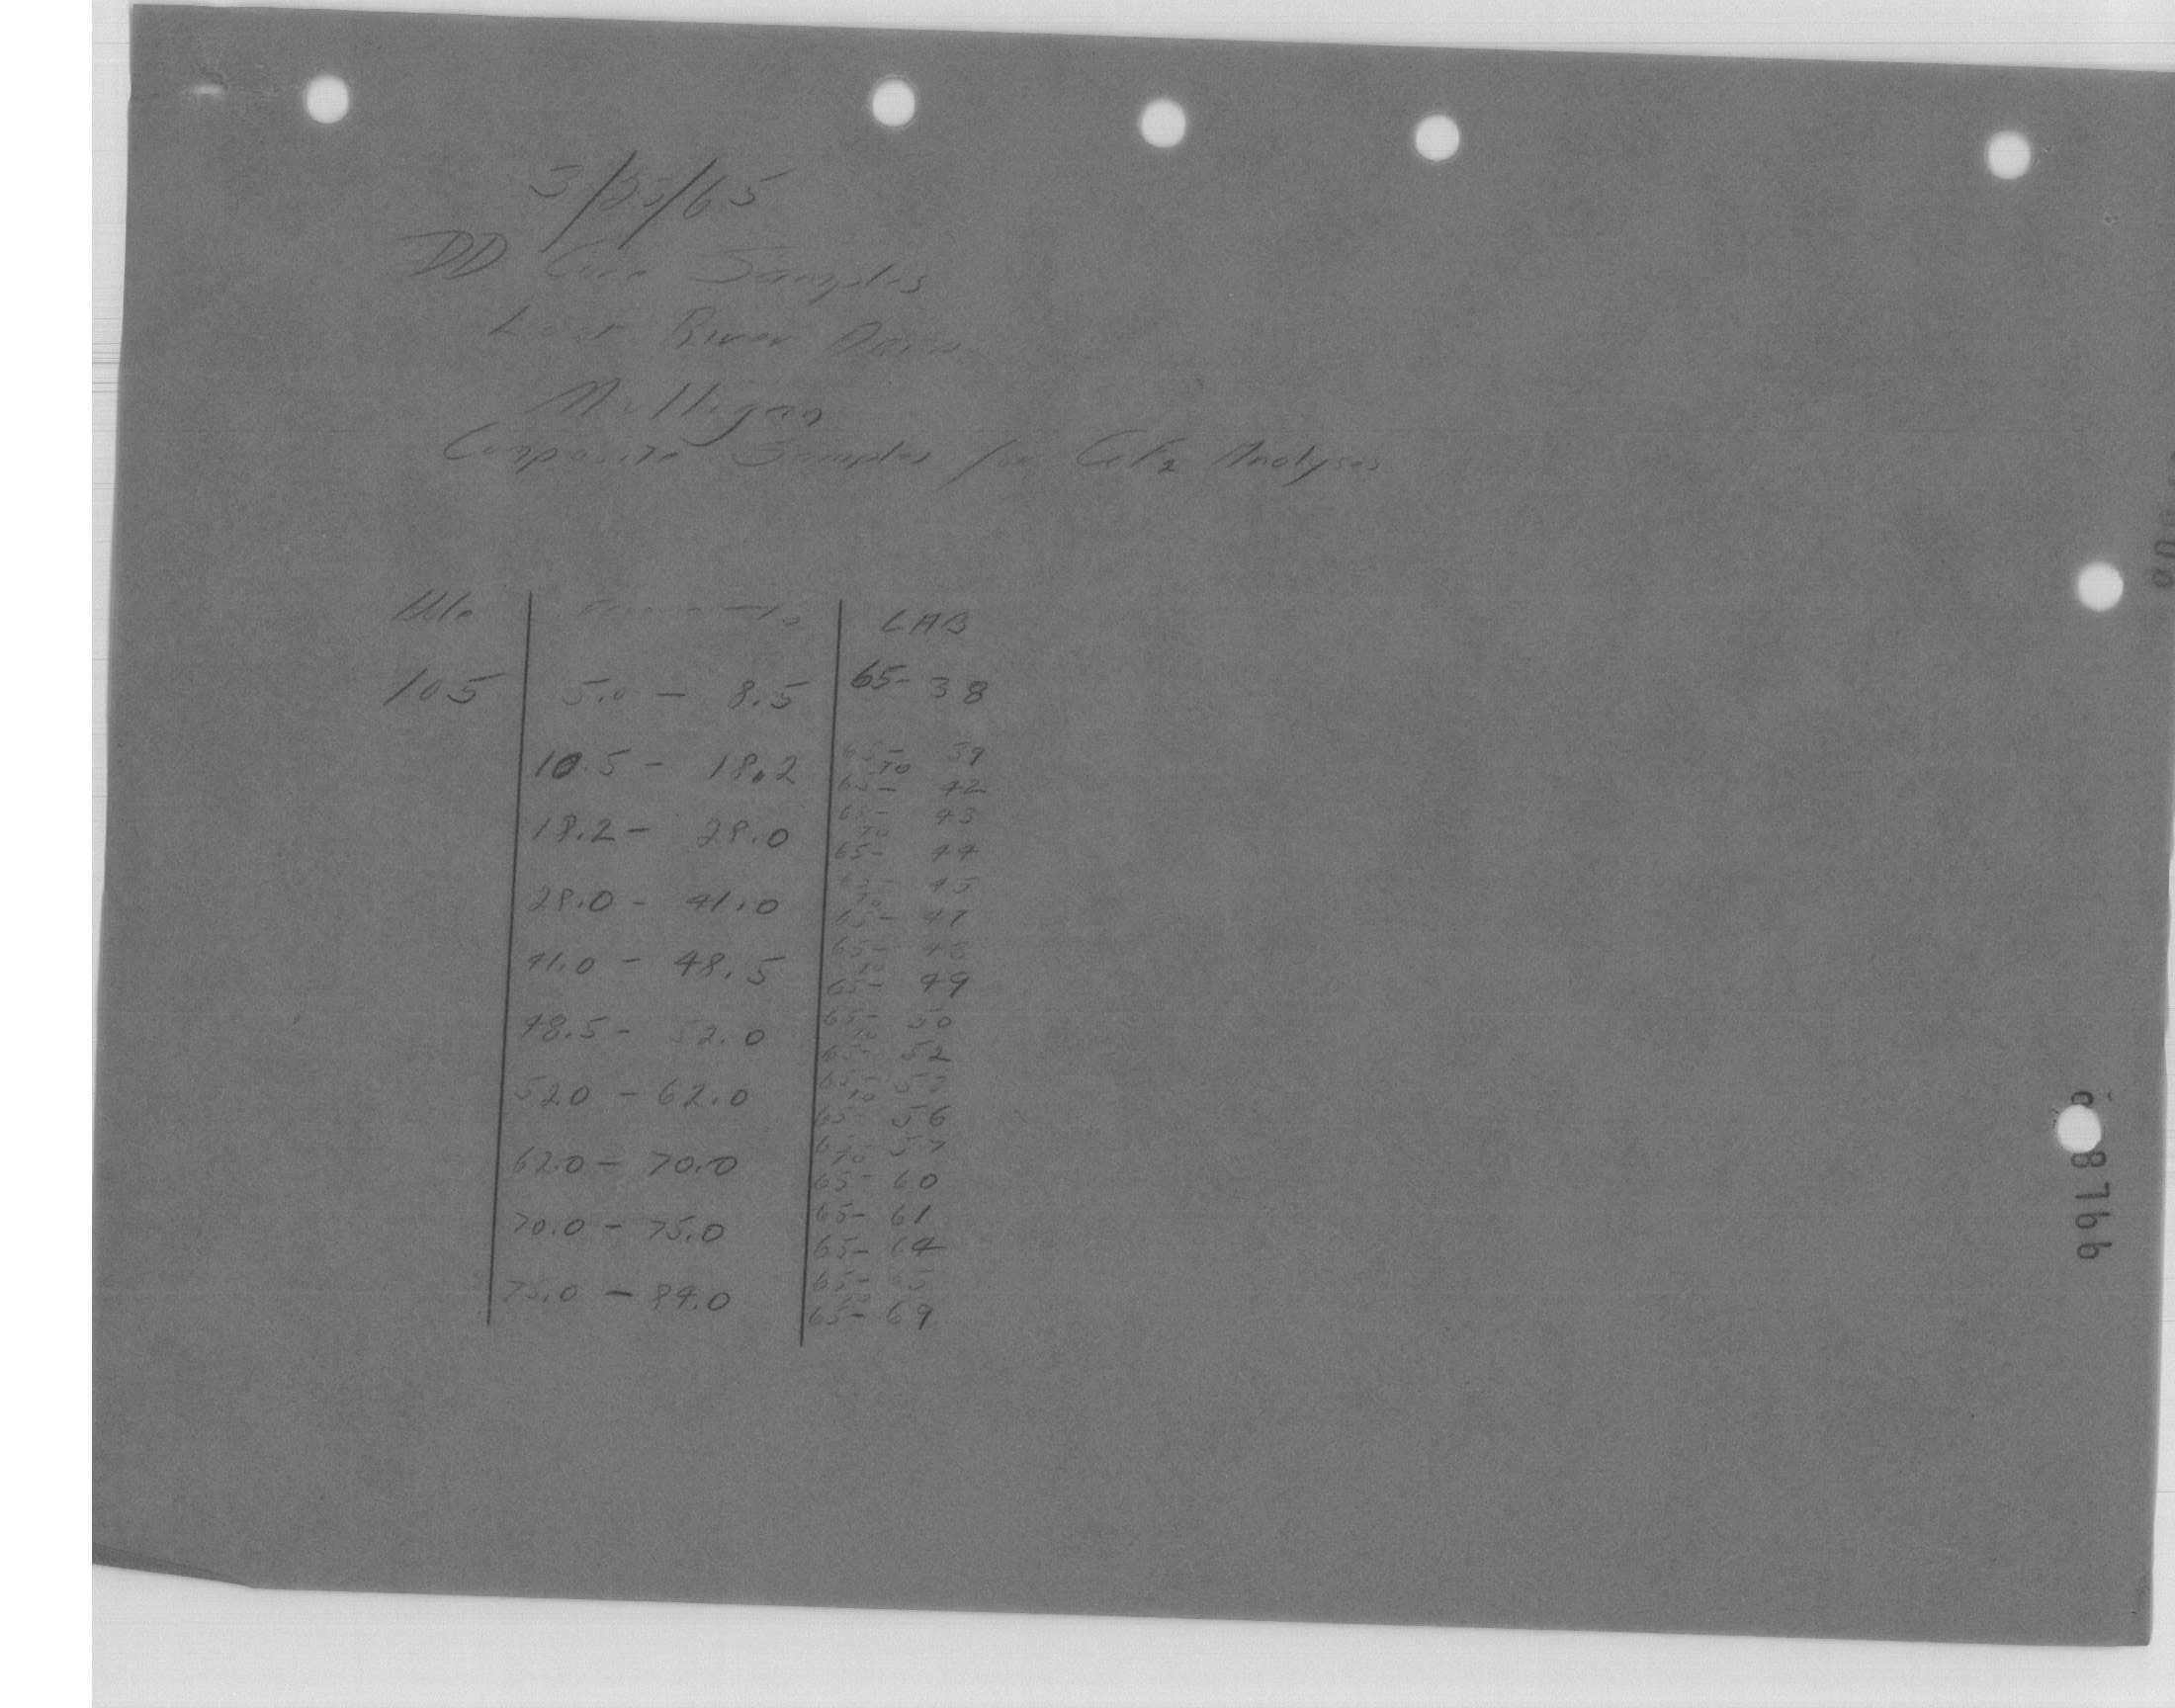 DD Core Samples
Lost River Area
Mulligan
Composite Samples for CaF2 Analyses
Hole LAB
105 5.0 - 8.5 65- 38
10.5 - 18.2 65- 39
TO
65- 42
18.2 - 28.0 65- 43
TO
65- 44
28.0 - 41.0 65- 45
TO
65- 47
41.0 - 48.5 65- 48
TO
65- 49
48.5 - 52.0 65- 50
TO
65- 52
52.0 - 62.0 65- 53
TO
65- 56
62.0 - 70.0 65- 57
TO
65- 60
70.0 - 75.0 65- 61
65- 64
75.0 - 84.0 65- 65
TO
65- 69